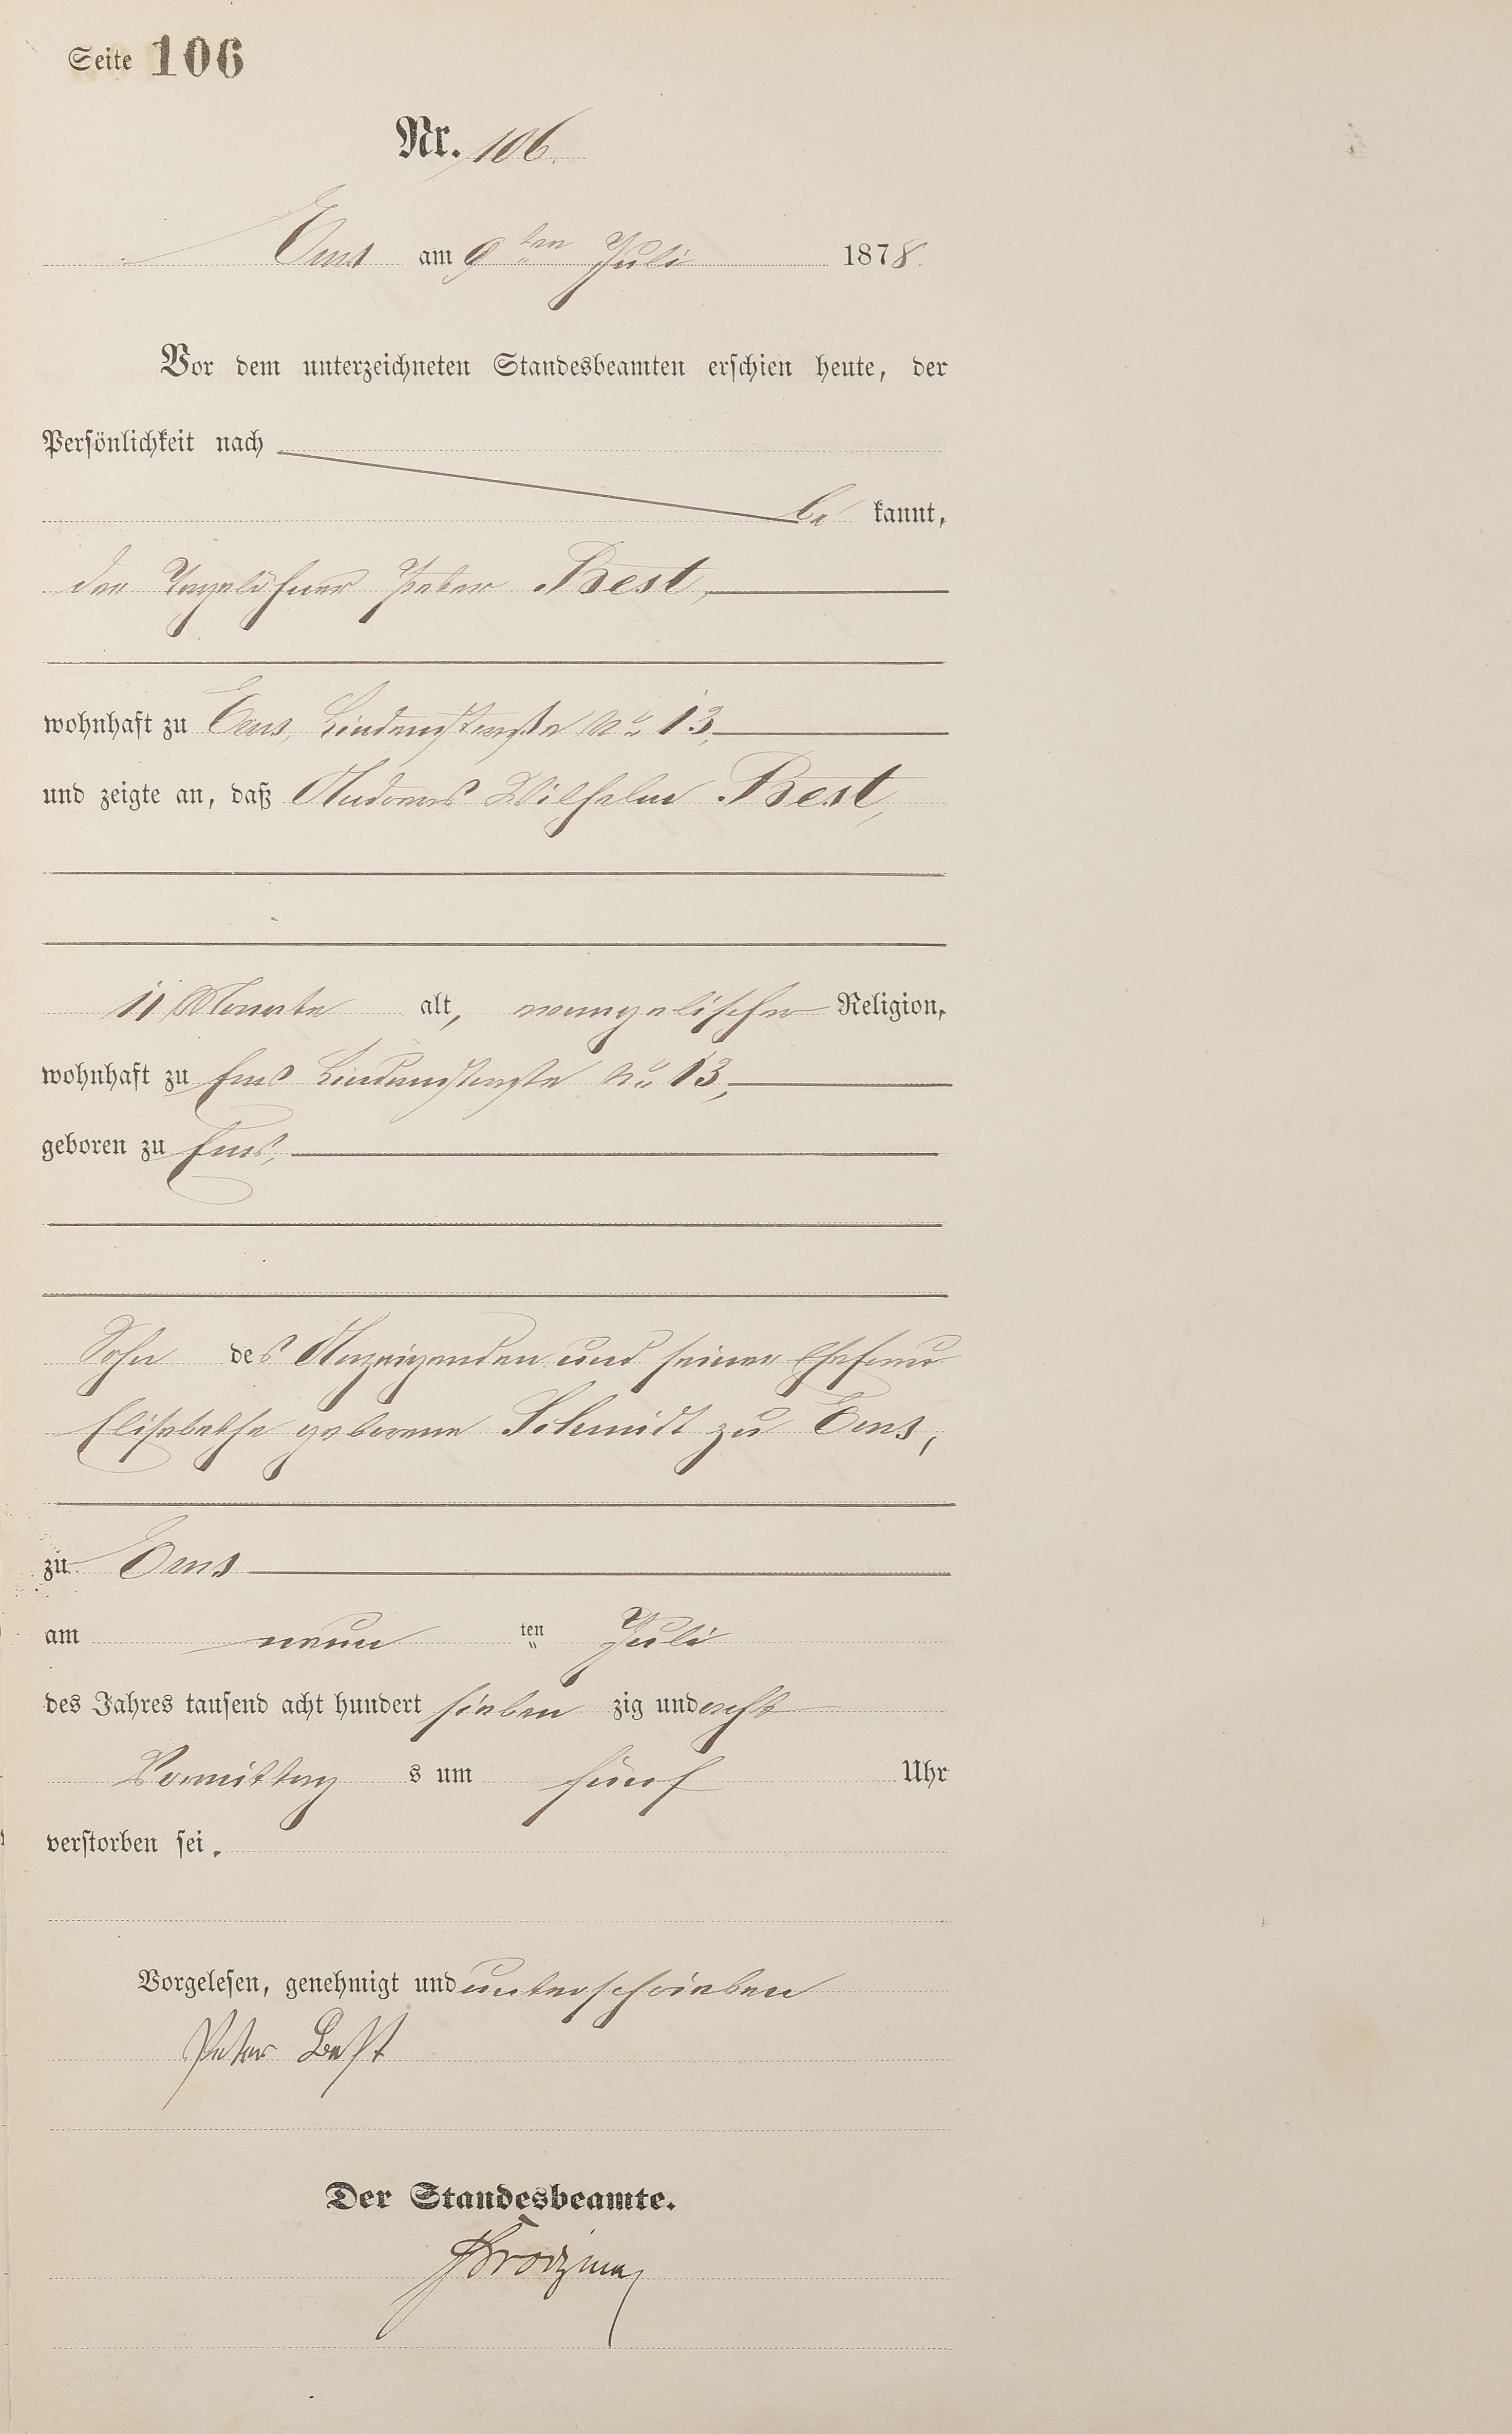 Seite 106
Nr. 106.
Ems am 9ten Juli 1878.
Vor dem unterzeichneten Standesbeamten erschien heute, der
Persönlichkeit nach
be kannt,
der Tagelöhner Peter Best,
wohnhaft zu Ems, Lindenstraße No 13,
und zeigte an, daß Andreas Wilhelm Best,
11 Monate alt, evangelischer Religion,
wohnhaft zu Ems Lindenstraße No 13,
geboren zu Ems,
Sohn des Anzeigenden und seiner Ehefrau
Elisabethe geborene Schmidt zu Ems,
zu Ems
am neun ten Juli
des Jahres tausend acht hundert sieben zig und acht
Vormittag s um fünf Uhr
verstorben sei.
Vorgelesen, genehmigt und unterschrieben
Peter Best
Der Standesbeamte.